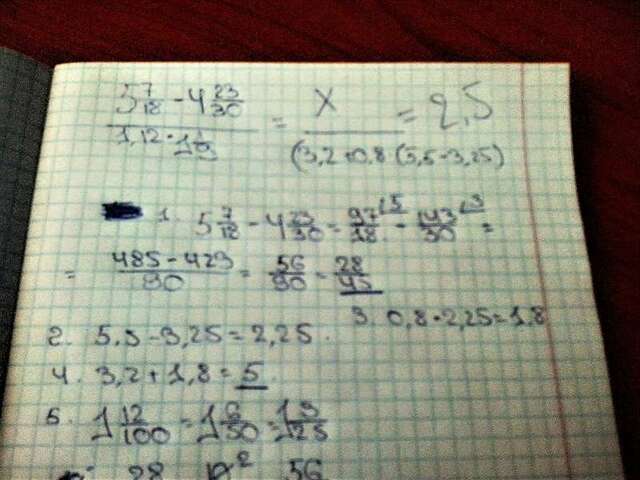 5 7/18 - 4 23/30 / 1,12 · 1 1/5 = X / (3,2 + 0,8 (5,5 - 3,25) = 2,5
1. 5 7/18 - 4 23/30 = 97/18 ⌊5 - 143/30 ⌊3 =
= 485 - 429 / 90 = 56/90 = 28/45
3. 0,8 · 2,25 = 1.8
2. 5,5 - 3,25 = 2,25.
4. 3,2 + 1,8 = 5
5. 1 12/100 = 1 6/50 = 1 3/25
28 2 56